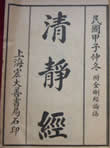 民國甲子仲冬
附金剛經論偈
清靜經
上海宏大善書局石印